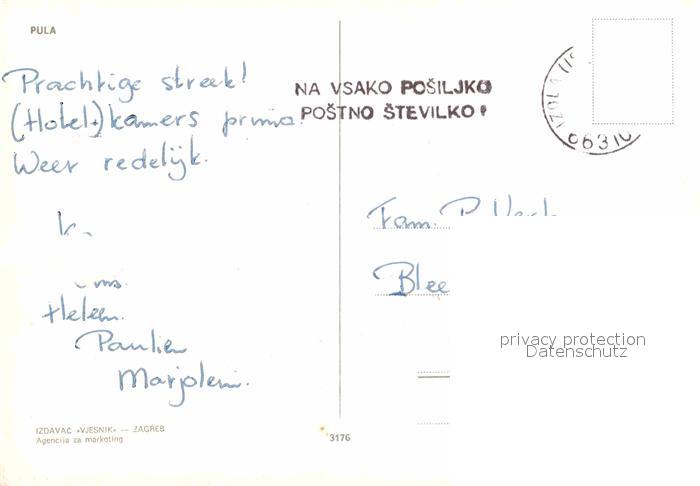 PULA
Prachtige streek!
(Hotel)kamers prima.
Weer redelijk.
Helen.
Paulien
Marjolein.
IZDAVAČ »VJESNIK« — ZAGREB
Agencija za marketing
3176
NA VSAKO POŠILJKO
POŠTNO ŠTEVILKO!
IZOLA
6310
Fam. P.
Blee
privacy protection
Datenschutz